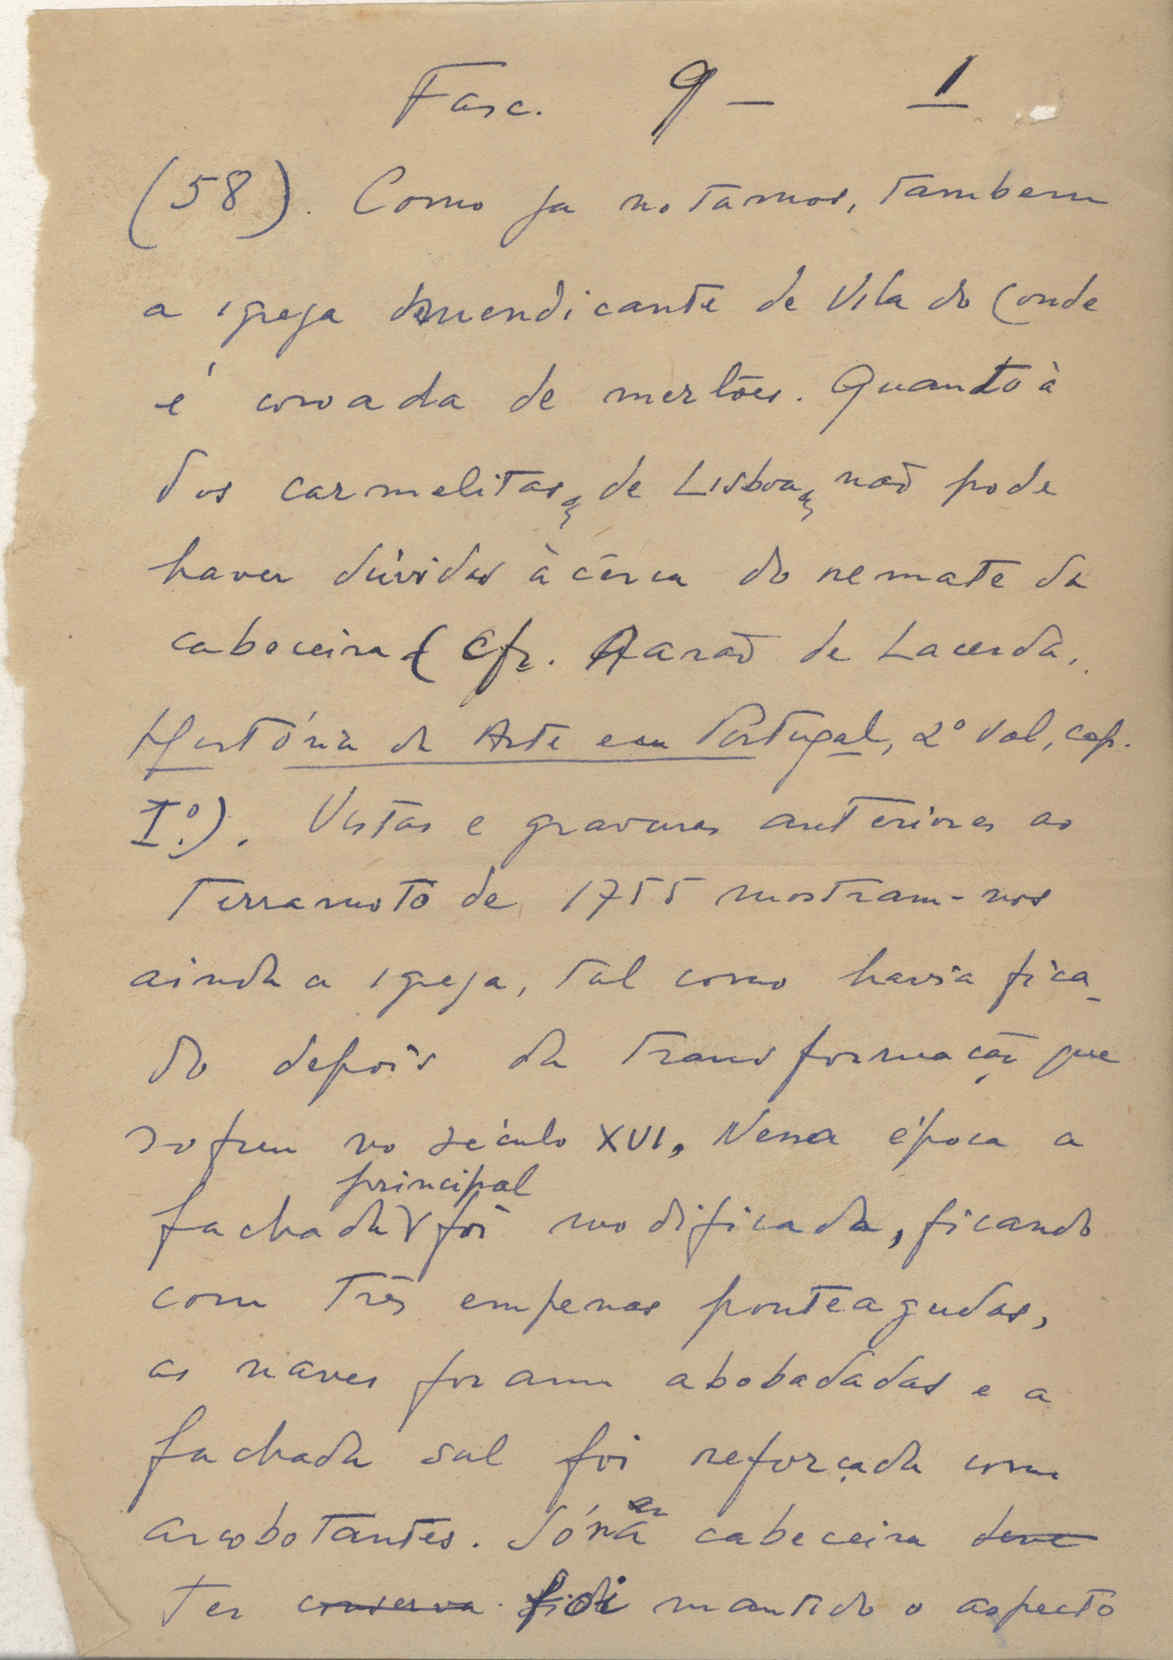 Fasc. 9 - 1
(58). Como ja notamos, tambem
a igreja mendicante de Vila do Conde
é coroada de merlões. Quanto à
dos carmelitas, de Lisboa, não pode
haver dúvidas àcêrca do remate da
cabeceira (Cfr. Aarão de Lacerda,
História da Arte em Portugal, 2º Vol, cap.
Iº.). Vistas e gravuras anteriores ao
Terramoto de 1755 mostram-nos
ainda a igreja, tal como havia fica-
do depois da transformação que
sofreu no século XVI, Nessa época a
principal
fachada foi modificada, ficando
com três empenas ponteagudas,
as naves foram abobadadas e a
fachada sul foi reforçada com
arcobotantes. Só na cabeceira deve
ter conserva foi mantido o aspecto